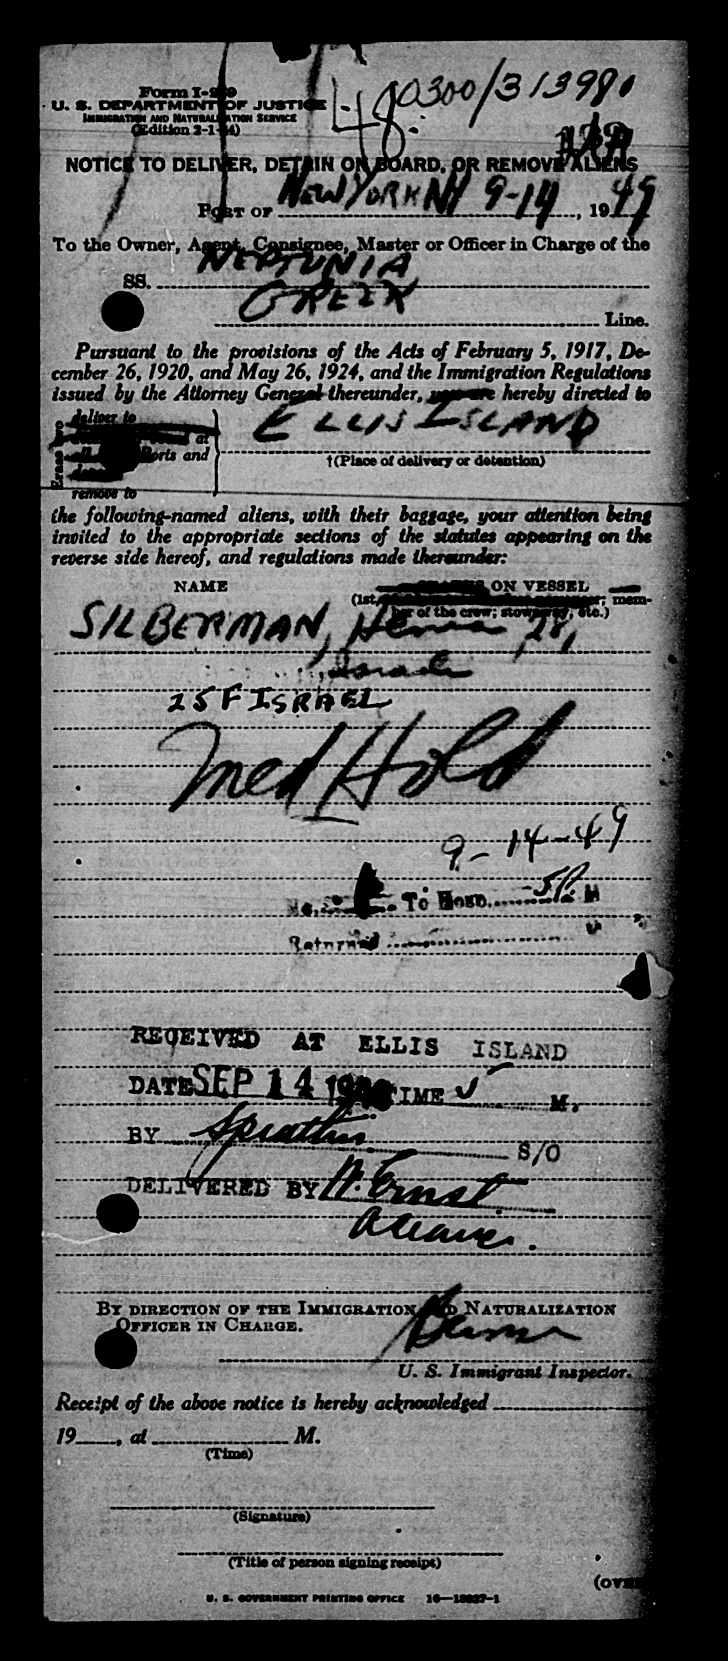 Form I-259
U. S. DEPARTMENT OF JUSTICE
IMMIGRATION AND NATURALIZATION SERVICE
(Edition 2-1-44)
0300/313981
NOTICE TO DELIVER, DETAIN ON BOARD, OR REMOVE ALIENS
PORT OF NEW YORK NY 9-14, 1949
To the Owner, Agent, Consignee, Master or Officer in Charge of the
SS. NEPTUNIA
GREEK Line.
Pursuant to the provisions of the Acts of February 5, 1917, De-
cember 26, 1920, and May 26, 1924, and the Immigration Regulations
issued by the Attorney General thereunder, you are hereby directed to
deliver to
at ELLIS ISLAND
Ports and
†(Place of delivery or detention)
remove to
the following-named aliens, with their baggage, your attention being
invited to the appropriate sections of the statutes appearing on the
reverse side hereof, and regulations made thereunder:
NAME ON VESSEL
(1st, mem-
ber of the crew; stowaway, etc.)
SILBERMAN, 28,
Israel
25 F ISRAEL
Med Hold
9-14-49
To Hosp. M
Returned
RECEIVED AT ELLIS ISLAND
DATE SEP 14 TIME 5 M.
BY S/O
DELIVERED BY Ernst
BY DIRECTION OF THE IMMIGRATION AND NATURALIZATION
OFFICER IN CHARGE.
U. S. Immigrant Inspector.
Receipt of the above notice is hereby acknowledged
19____, at M.
(Time)
(Signature)
(Title of person signing receipt)
(OVER
U. S. GOVERNMENT PRINTING OFFICE